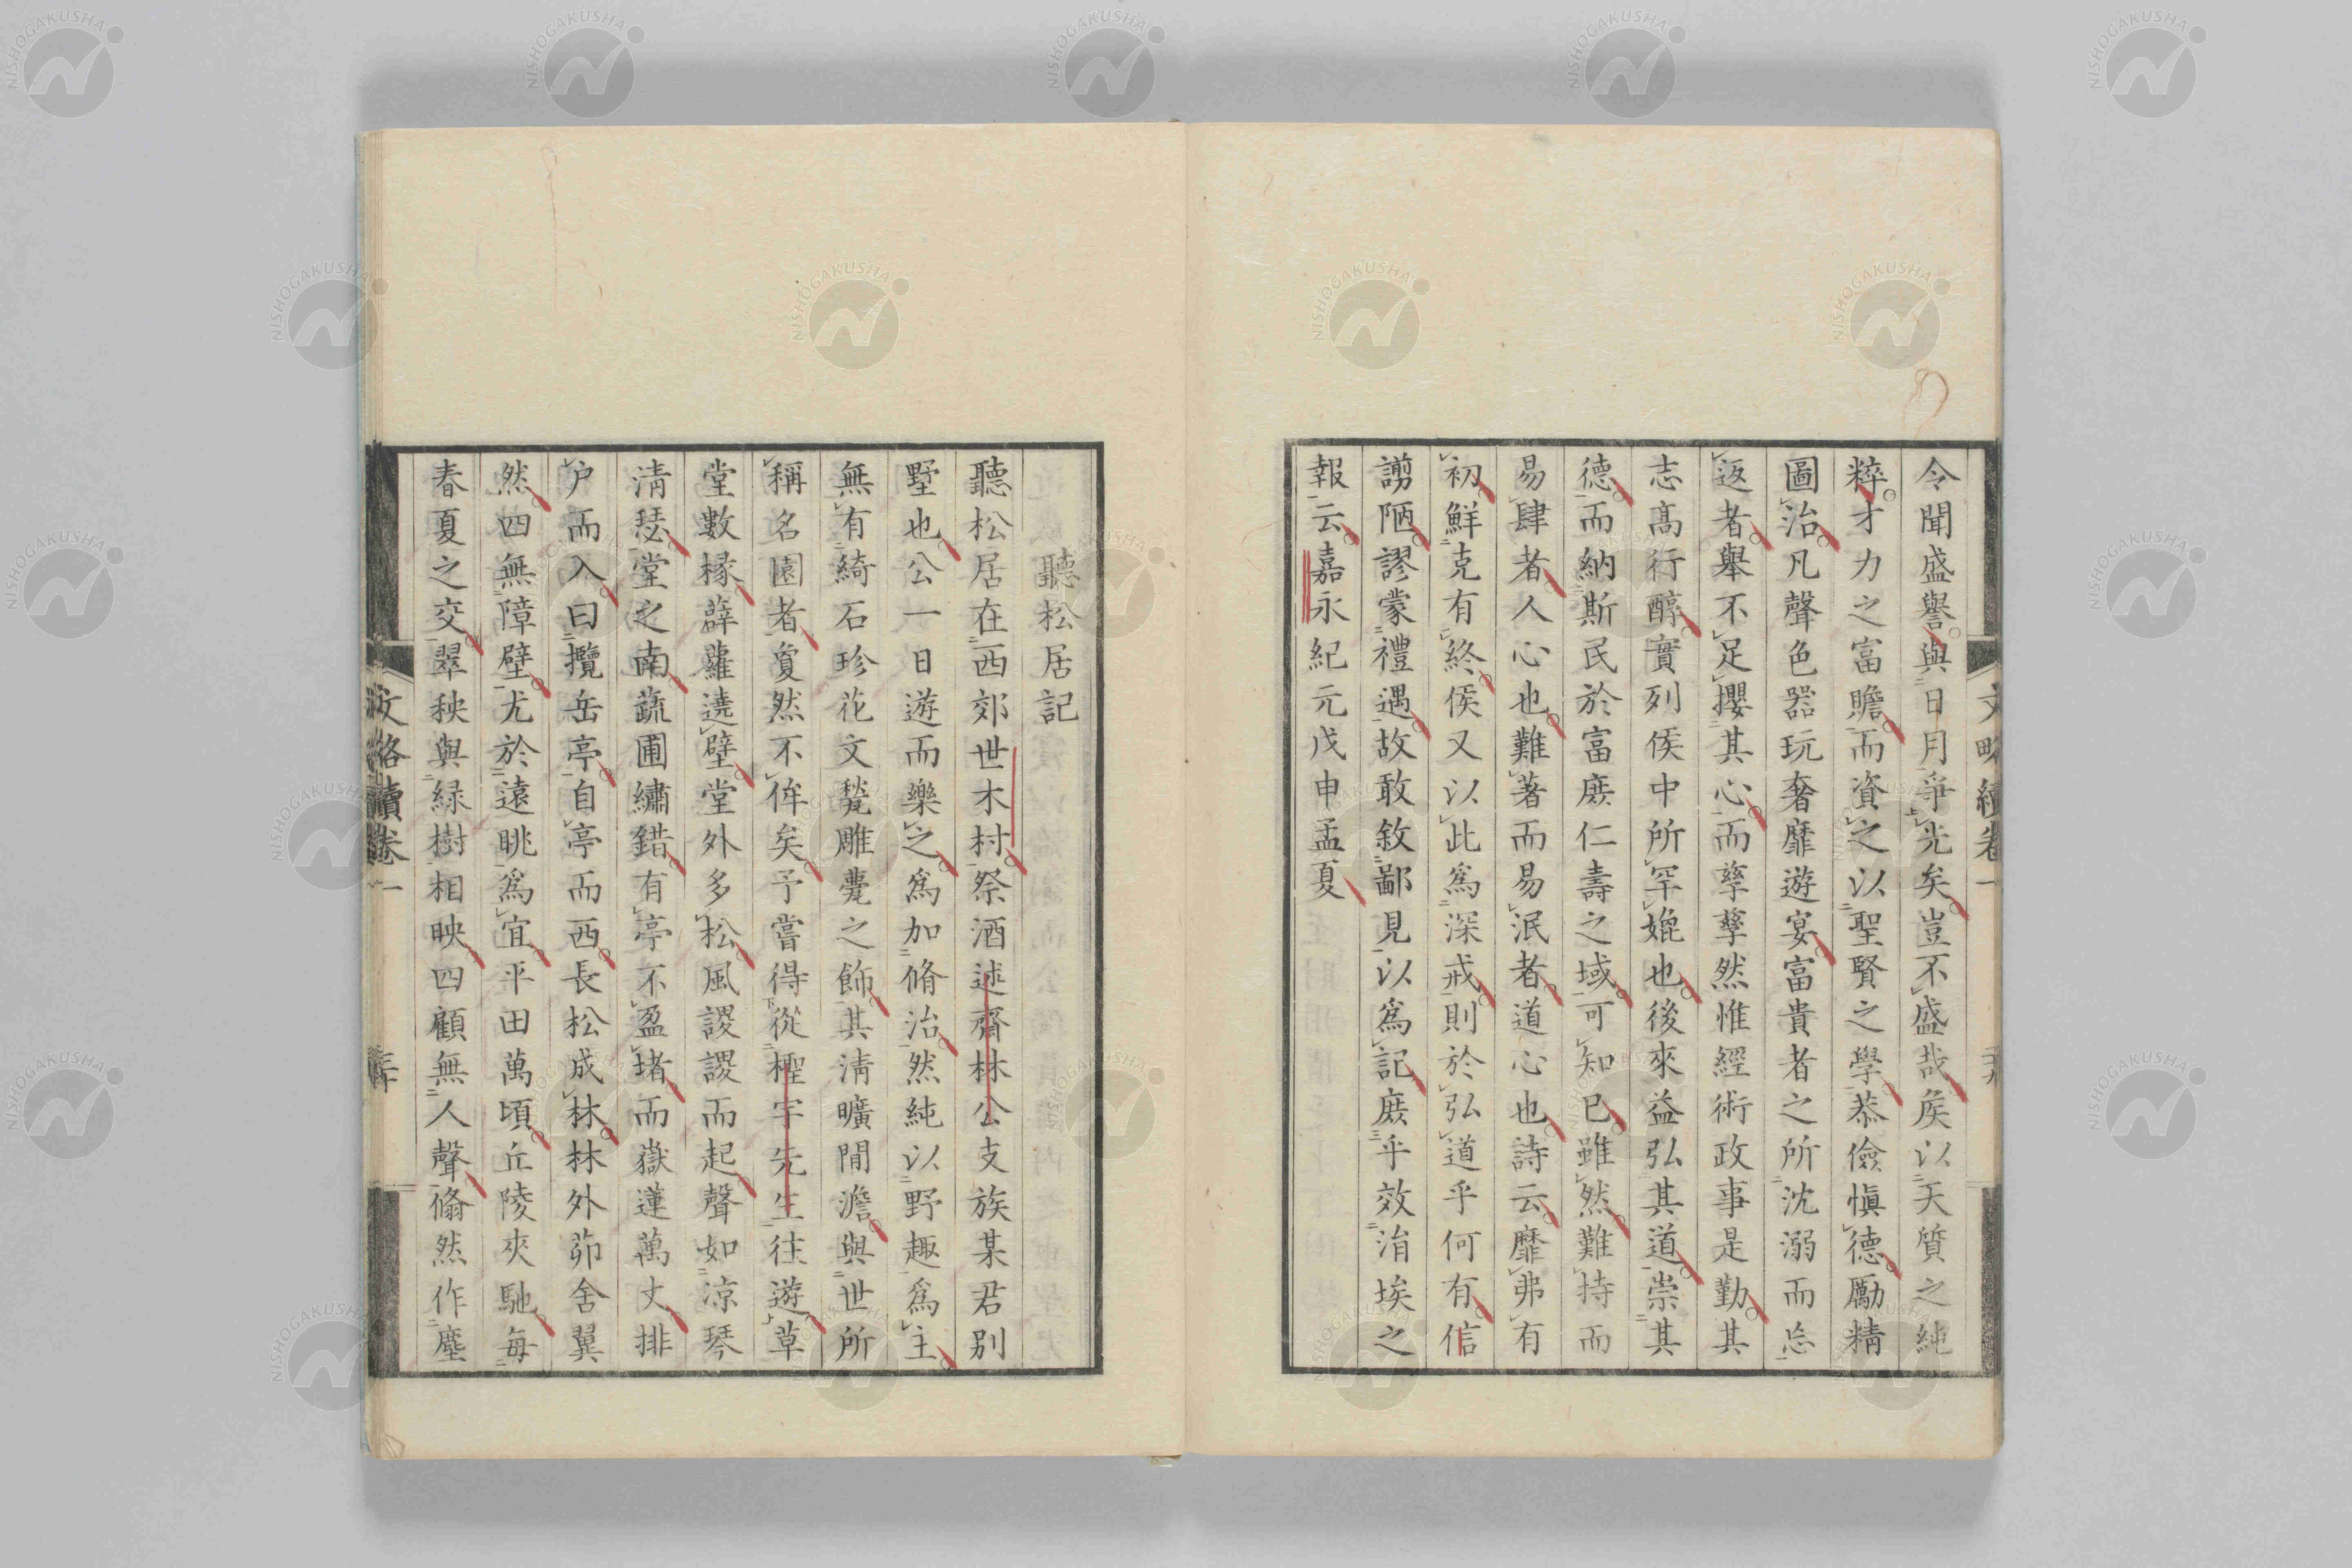 令聞盛譽與日月爭光矣豈不盛哉矦以天質之純
粹才力之富贍而資之以聖賢之學恭儉愼德勵精
圖治凡聲色器玩奢靡遊宴富貴者之所沈溺而忘
返者舉不足攖其心而孳孳然惟經術政事是勤其
志高行醇實列侯中所罕媲也後來益弘其道崇其
德而納斯民於富庶仁壽之域可知已雖然難持而
易肆者人心也難著而易泯者道心也詩云靡弗有
初鮮克有終侯又以此爲深戒則於弘道乎何有信
謭陋謬蒙禮遇故敢敘鄙見以爲記庶乎效涓埃之
報云嘉永紀元戊申孟夏
聽松居記
聽松居在西郊世木村祭酒述齋林公支族某君別
墅也公一日遊而樂之爲加脩治然純以野趣爲主
無有綺石珍花文甃雕甍之飾其淸曠閒澹與世所
稱名園者夐然不侔矣予嘗得從檉宇先生往遊草
堂數椽薜蘿遶壁堂外多松風謖謖而起聲如涼琴
淸瑟堂之南蔬圃繡錯有亭不盈堵而嶽蓮萬丈排
戶而入曰攬岳亭自亭而西長松成林林外茆舍翼
然四無障壁尤於遠眺爲宜平田萬頃丘陵夾馳每
春夏之交翠秧與綠樹相映四顧無人聲翛然作塵
文略續卷一
NISHOGAKUSHA